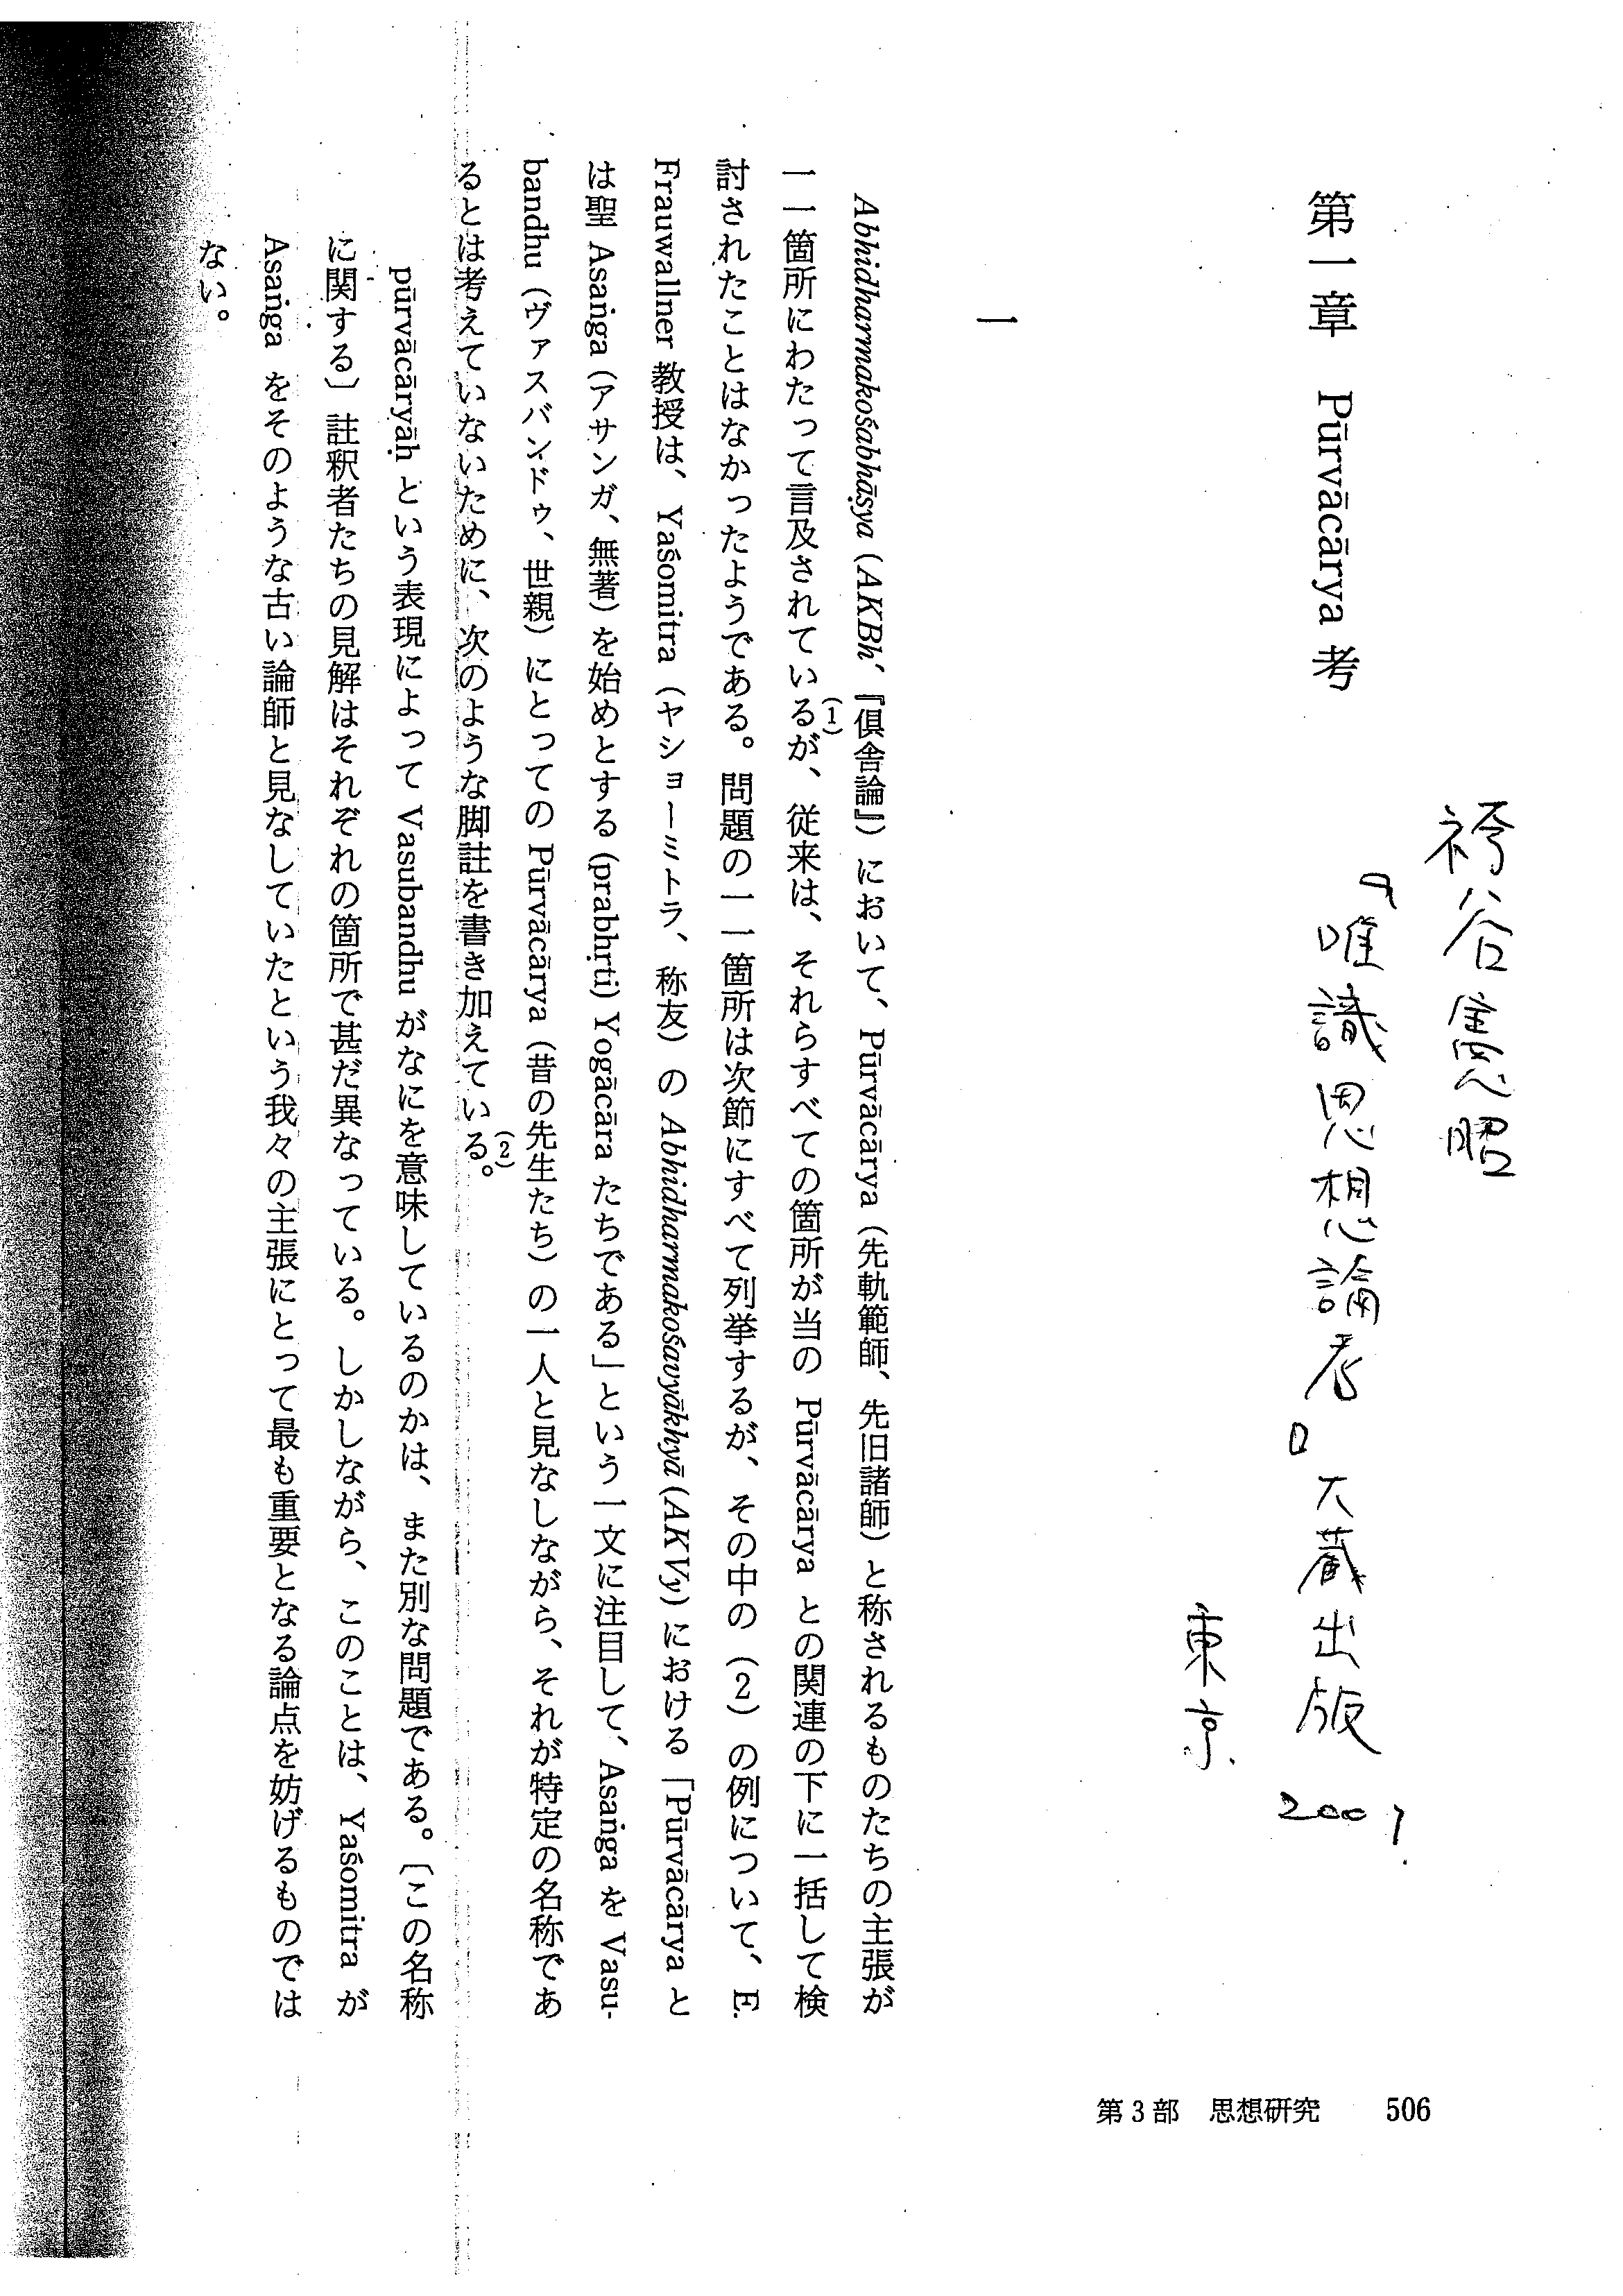 袴谷憲昭
『唯識思想論考』大蔵出版 2001.
東京.
第一章　Pūrvācārya 考
一
Abhidharmakośabhāṣya (AKBh,『倶舎論』) において、Pūrvācārya (先軌範師、先旧諸師) と称されるものたちの主張が
一一箇所にわたって言及されているが、(1)従来は、それらすべての箇所が当の Pūrvācārya との関連の下に一括して検
討されたことはなかったようである。問題の一一箇所は次節にすべて列挙するが、その中の (2) の例について、E.
Frauwallner 教授は、Yaśomitra (ヤショーミトラ、称友) の Abhidharmakośavyākhyā (AKVy) における「Pūrvācārya と
は聖 Asaṅga (アサンガ、無著) を始めとする (prabhṛti) Yogācāra たちである」という一文に注目して、Asaṅga を Vasu-
bandhu (ヴァスバンドゥ、世親) にとっての Pūrvācārya (昔の先生たち) の一人と見なしながら、それが特定の名称であ
るとは考えていないために、次のような脚註を書き加えている。(2)
pūrvācāryāḥ という表現によって Vasubandhu がなにを意味しているのかは、また別な問題である。〔この名称
に関する〕註釈者たちの見解はそれぞれの箇所で甚だ異なっている。しかしながら、このことは、Yaśomitra が
Asaṅga をそのような古い論師と見なしていたという我々の主張にとって最も重要となる論点を妨げるものでは
ない。
第3部　思想研究　506